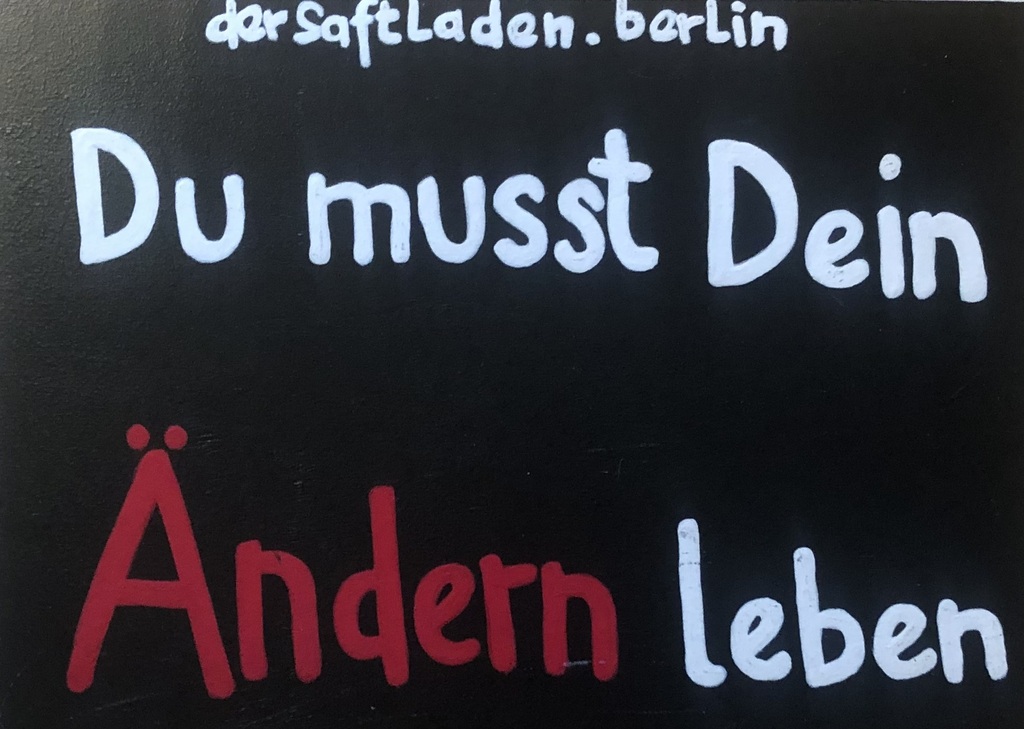 derSaftLaden.berlin
Du musst Dein
Ändern leben